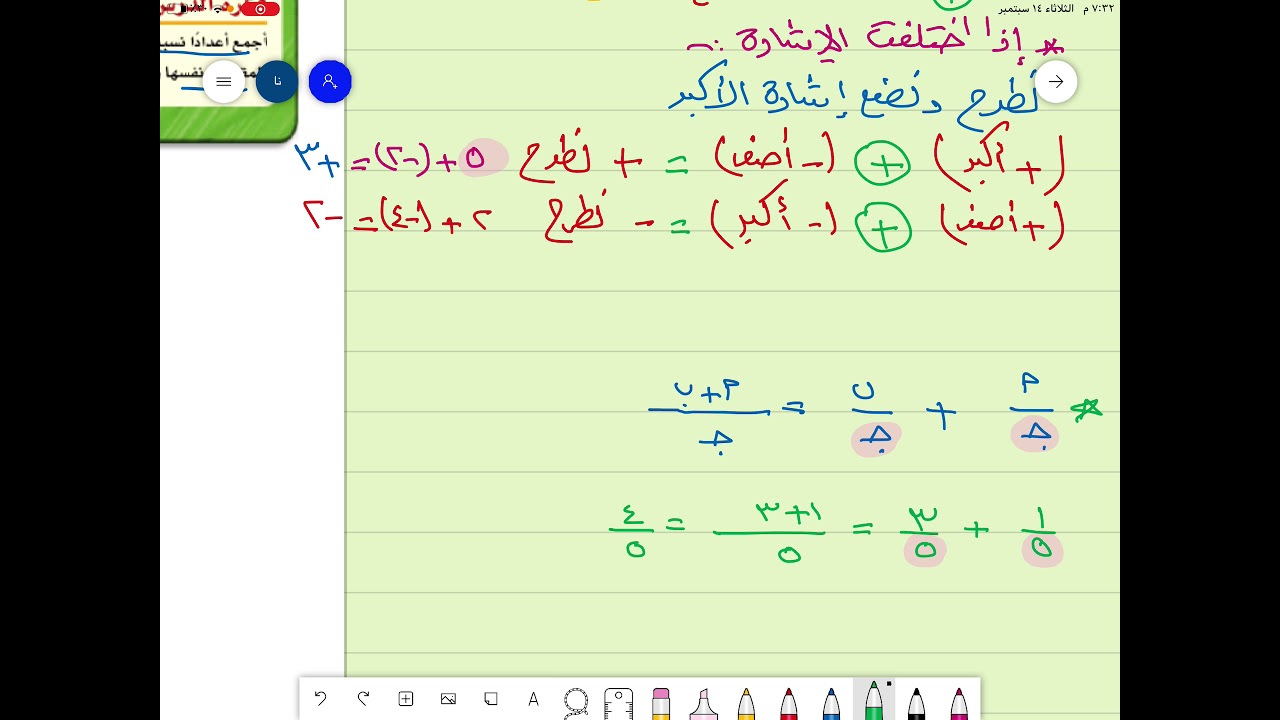 ٧:٣٢ م الثلاثاء ١٤ سبتمبر
* إذا اختلفت الإشارة :-
نطرح ونضع إشارة الأكبر
(+ أكبر) + (- أصغر) = + نطرح ٥ + (-٢) = +٣
(+ أصغر) + (- أكبر) = - نطرح ٢ + (-٤) = -٢
أ/جـ + ب/جـ = أ+ب/جـ
١/٥ + ٣/٥ = ١+٣/٥ = ٤/٥
أجمع أعدادًا
نفسها
نا
A